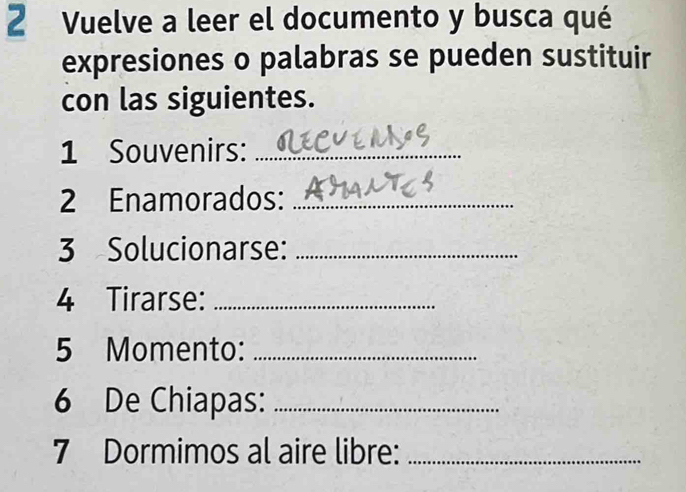 2 Vuelve a leer el documento y busca qué
expresiones o palabras se pueden sustituir
con las siguientes.
1 Souvenirs: RECUERDOS
2 Enamorados: AMANTES
3 Solucionarse:
4 Tirarse:
5 Momento:
6 De Chiapas:
7 Dormimos al aire libre: